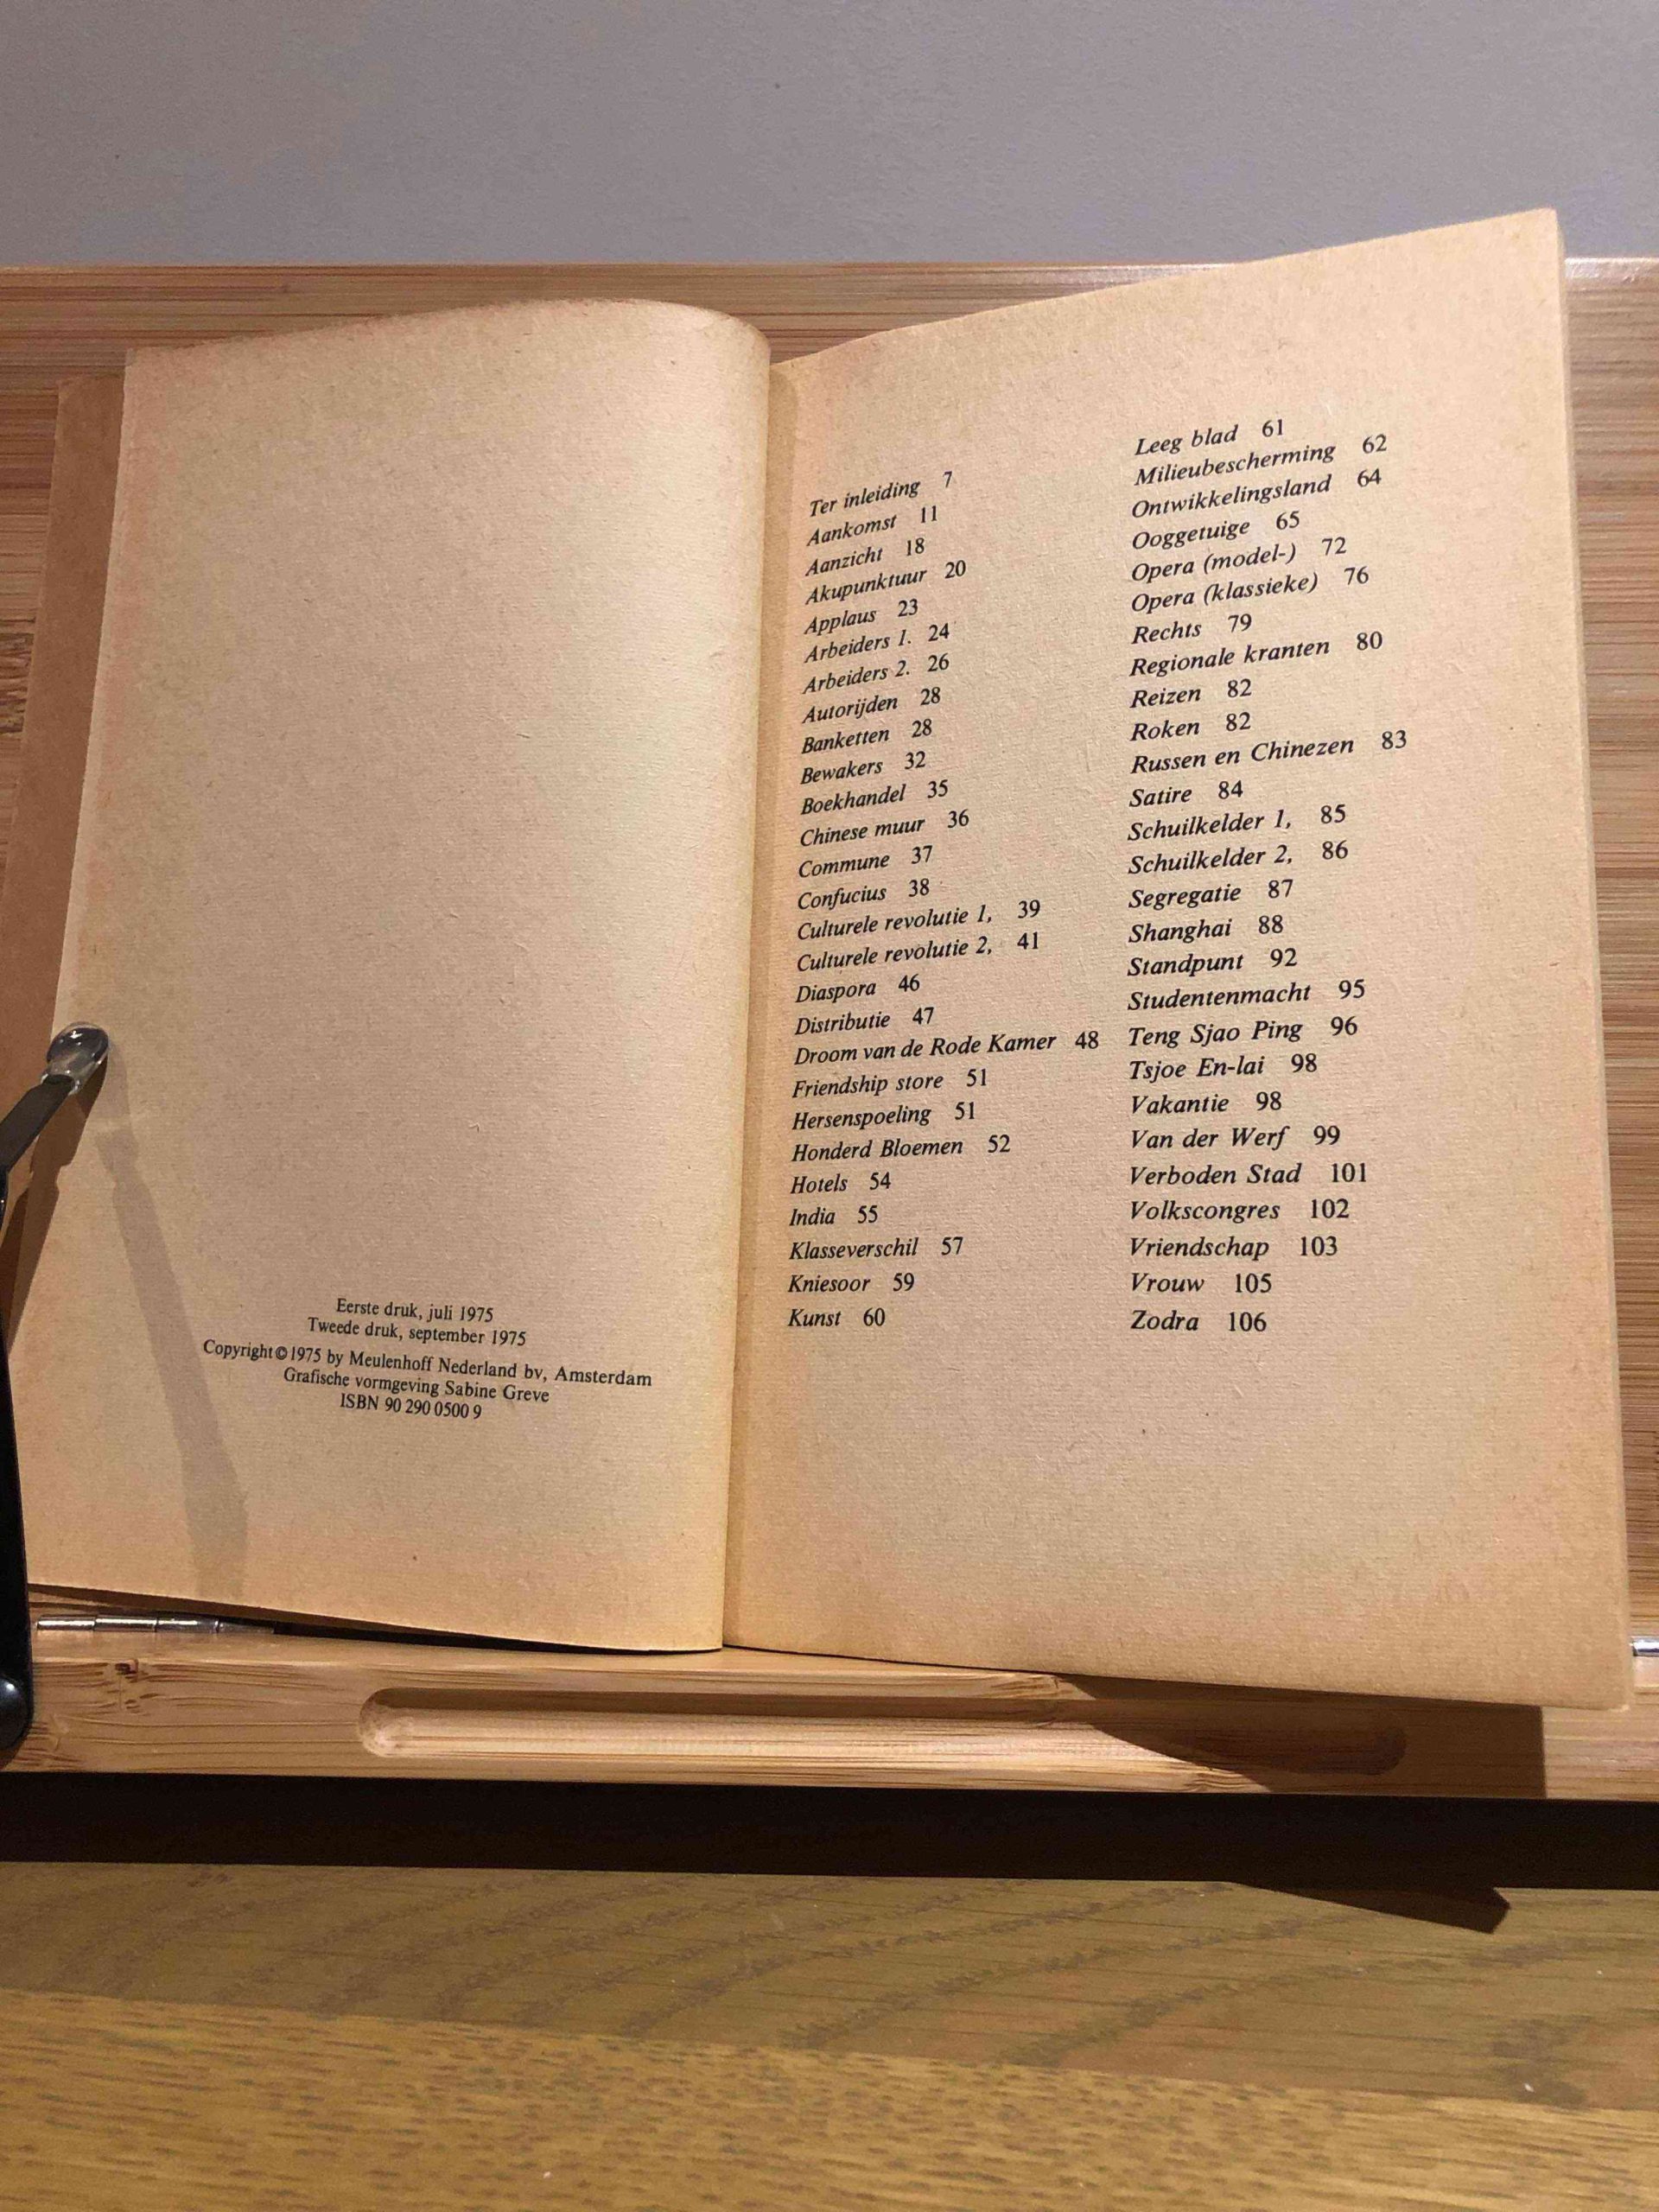 Eerste druk, juli 1975
Tweede druk, september 1975
Copyright © 1975 by Meulenhoff Nederland bv, Amsterdam
Grafische vormgeving Sabine Greve
ISBN 90 290 0500 9
Ter inleiding 7
Aankomst 11
Aanzicht 18
Akupunktuur 20
Applaus 23
Arbeiders 1. 24
Arbeiders 2. 26
Autorijden 28
Banketten 28
Bewakers 32
Boekhandel 35
Chinese muur 36
Commune 37
Confucius 38
Culturele revolutie 1, 39
Culturele revolutie 2, 41
Diaspora 46
Distributie 47
Droom van de Rode Kamer 48
Friendship store 51
Hersenspoeling 51
Honderd Bloemen 52
Hotels 54
India 55
Klasseverschil 57
Kniesoor 59
Kunst 60
Leeg blad 61
Milieubescherming 62
Ontwikkelingsland 64
Ooggetuige 65
Opera (model-) 72
Opera (klassieke) 76
Rechts 79
Regionale kranten 80
Reizen 82
Roken 82
Russen en Chinezen 83
Satire 84
Schuilkelder 1, 85
Schuilkelder 2, 86
Segregatie 87
Shanghai 88
Standpunt 92
Studentenmacht 95
Teng Sjao Ping 96
Tsjoe En-lai 98
Vakantie 98
Van der Werf 99
Verboden Stad 101
Volkscongres 102
Vriendschap 103
Vrouw 105
Zodra 106